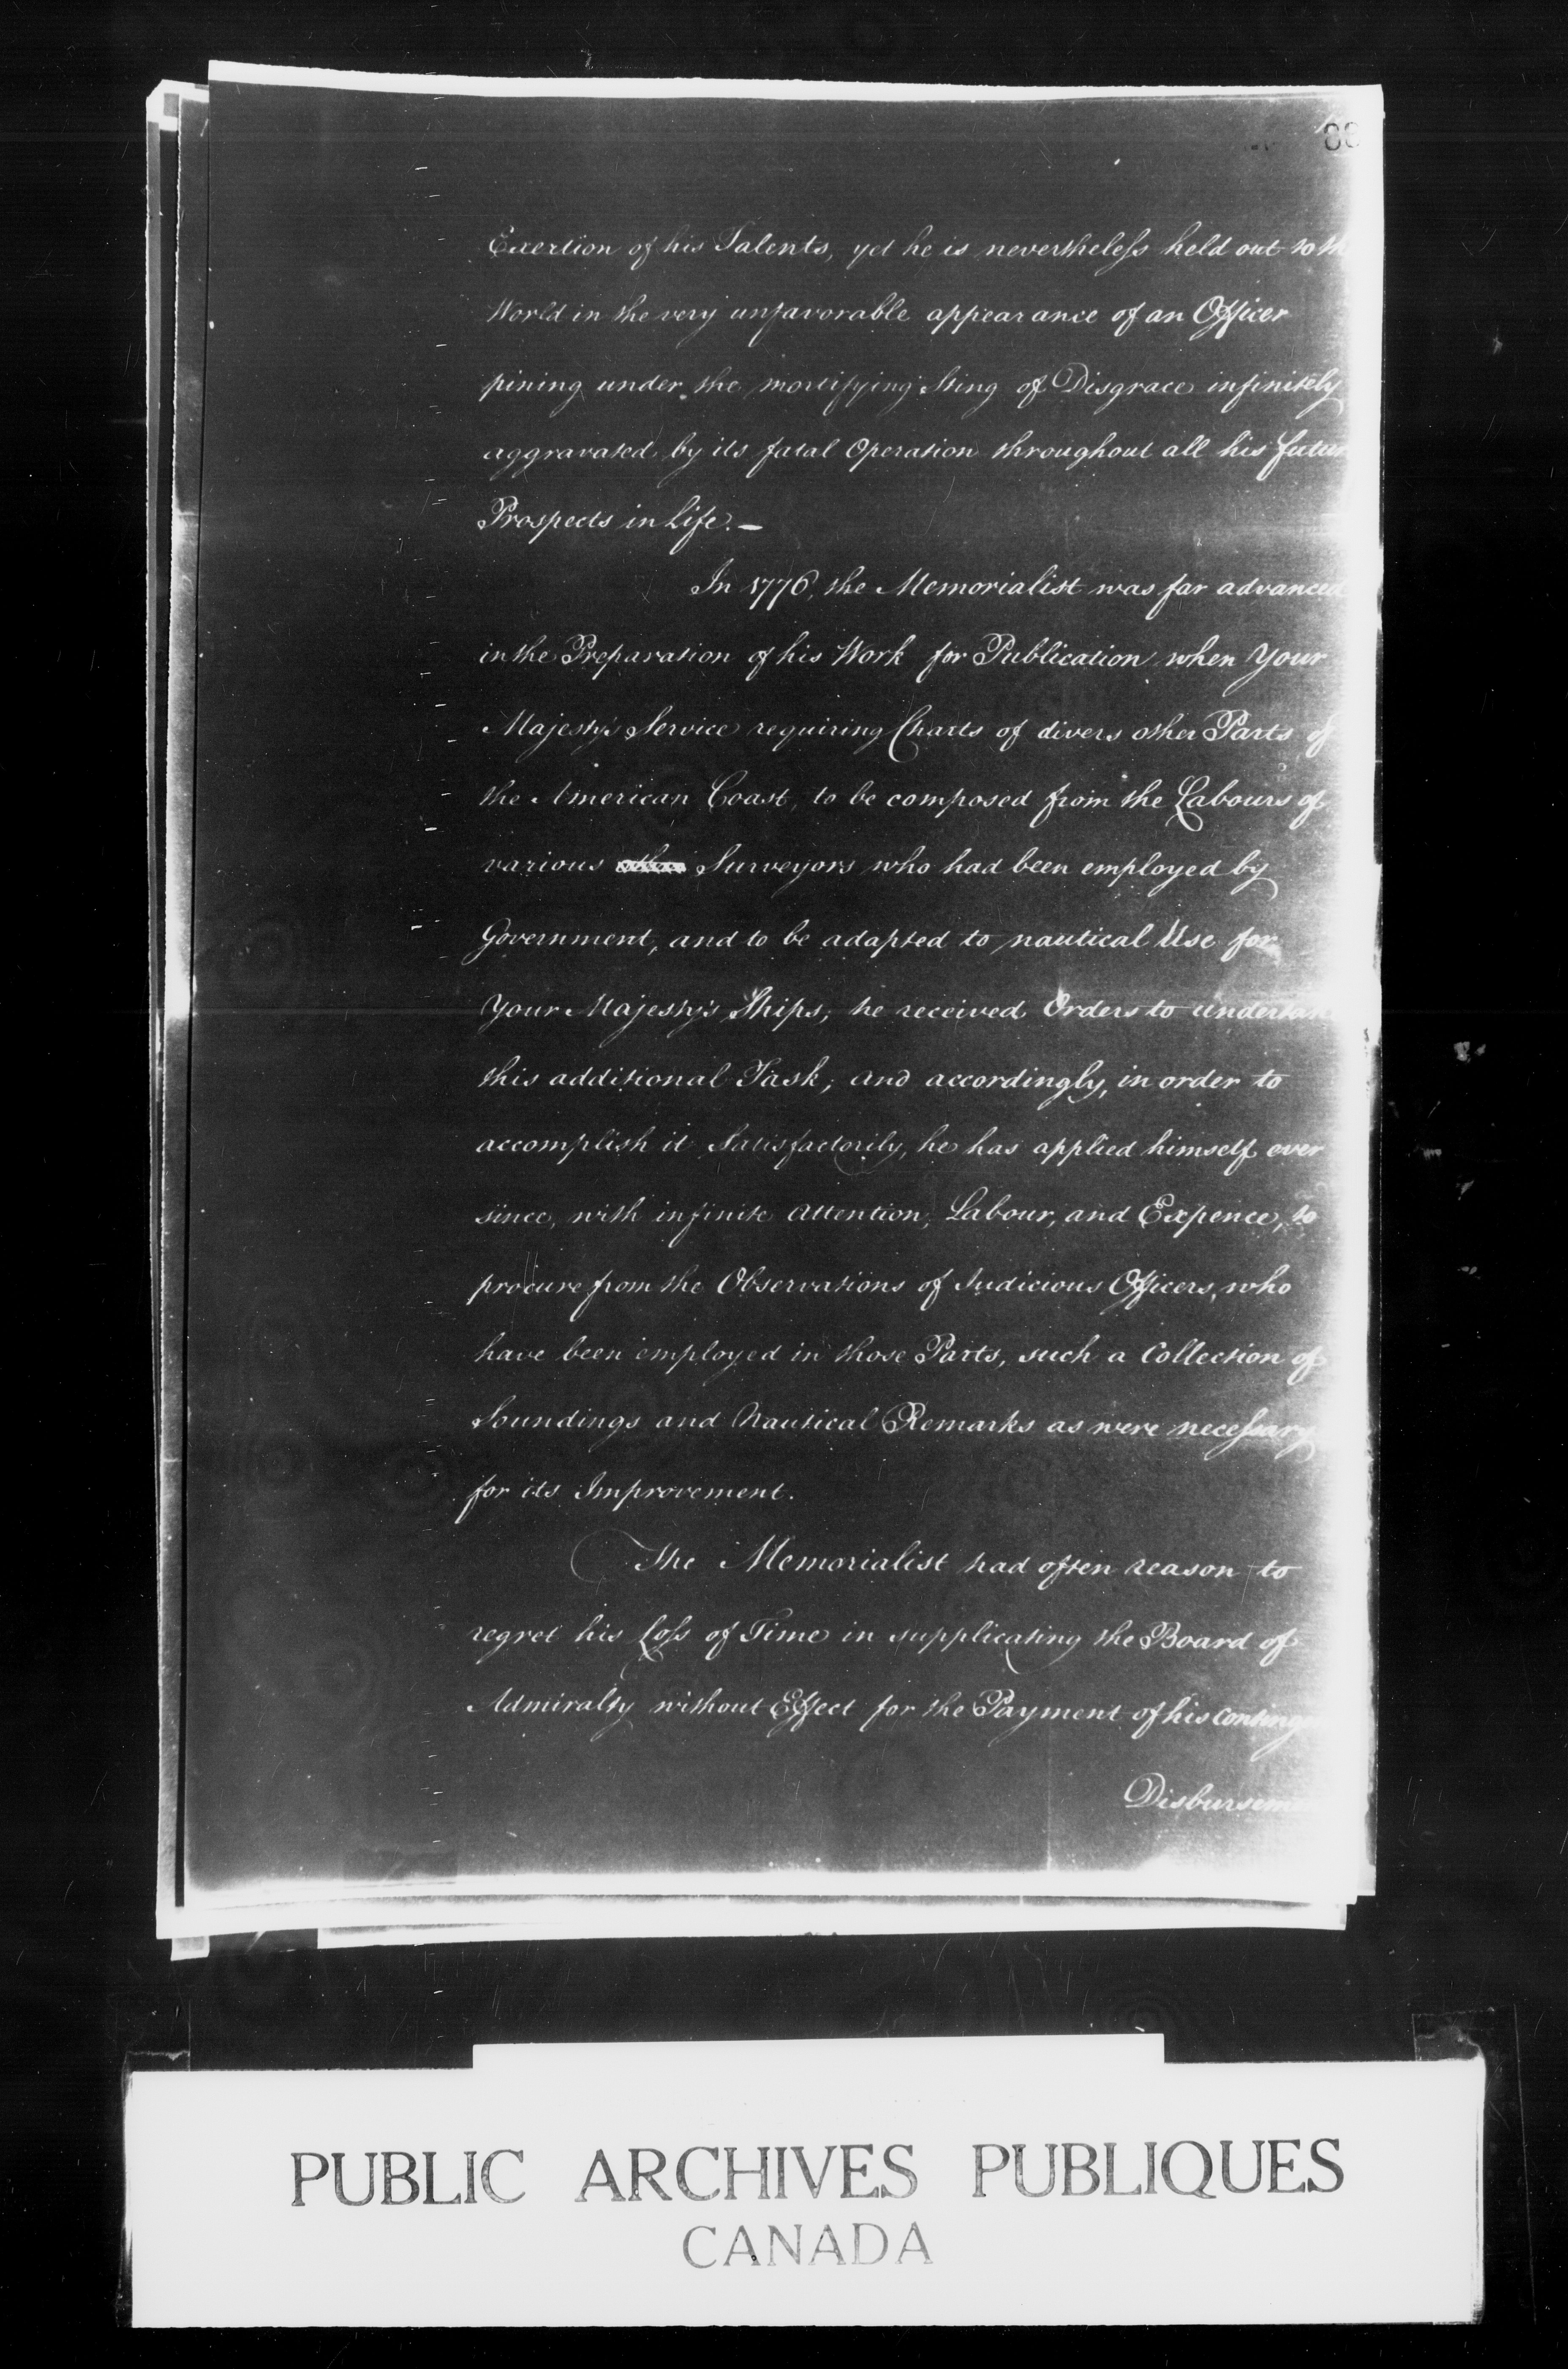 88
Exertion of his Talents, yet he is nevertheless held out to th
World in the very unfavorable appearance of an Officer
pining under the mortifying Sting of Disgrace infinitely
aggravated by its fatal Operation throughout all his futur
Prospects in Life. —
In 1776, the Memorialist was far advanced
in the Preparation of his Work for Publication, when Your
Majesty's Service requiring Charts of divers other Parts of
the American Coast, to be composed from the Labours of
various Surveyors who had been employed by
Government, and to be adapted to nautical Use for
Your Majesty's Ships; he received Orders to undertak
this additional Task; and accordingly, in order to
accomplish it Satisfactorily, he has applied himself ever
since, with infinite Attention, Labour, and Expence, to
procure from the Observations of Judicious Officers, who
have been employed in those Parts, such a Collection of
Soundings and Nautical Remarks as were necessary
for its Improvement.
The Memorialist had often reason to
regret his Loss of Time in supplicating the Board of
Admiralty without Effect for the Payment of his conting
Disburseme
PUBLIC ARCHIVES PUBLIQUES
CANADA